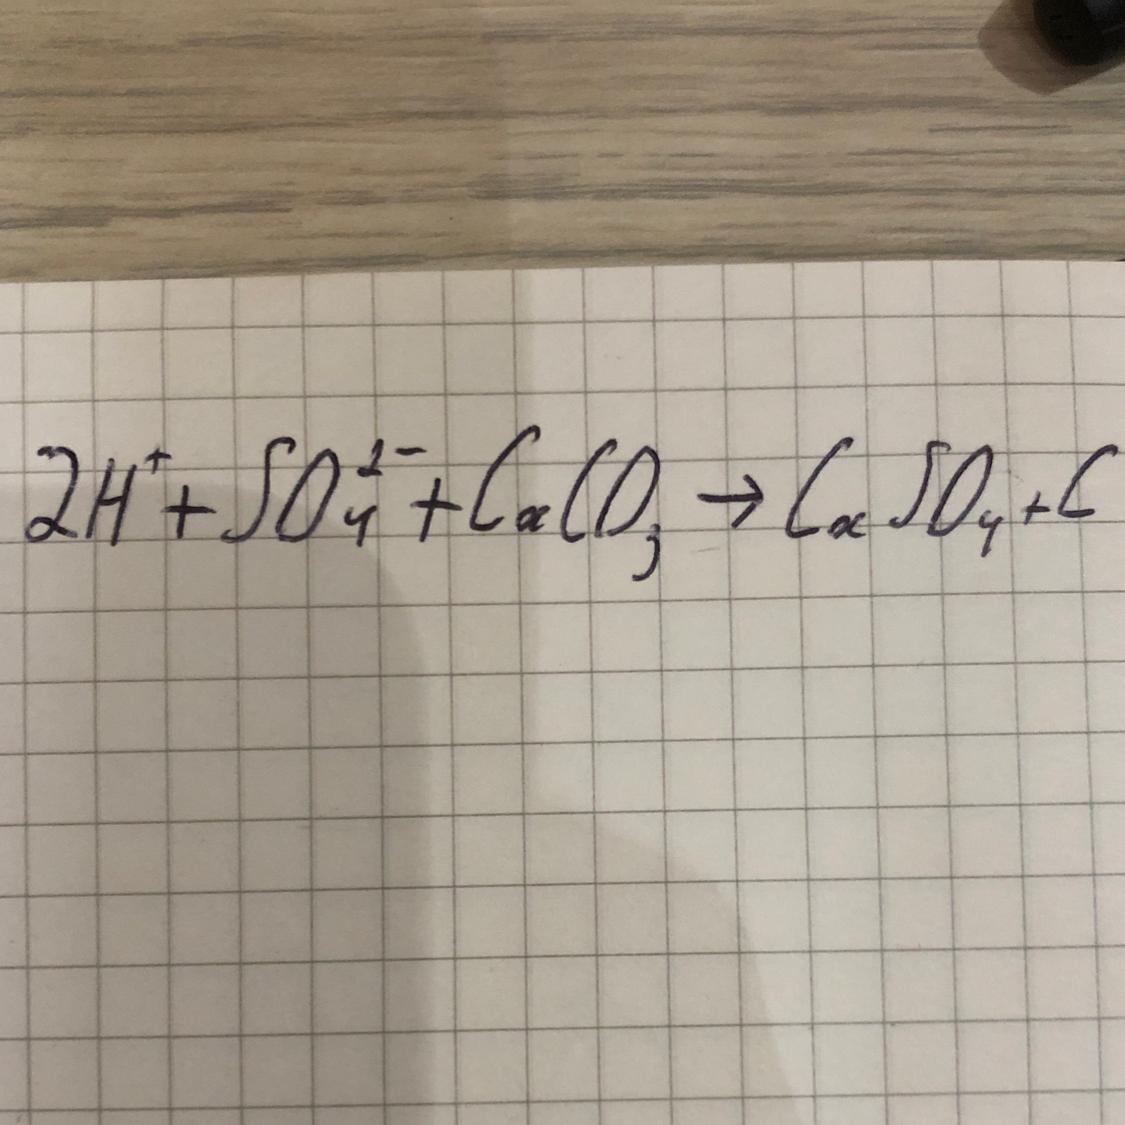 2H⁺ + SO₄²⁻ + CaCO₃ → CaSO₄ + C